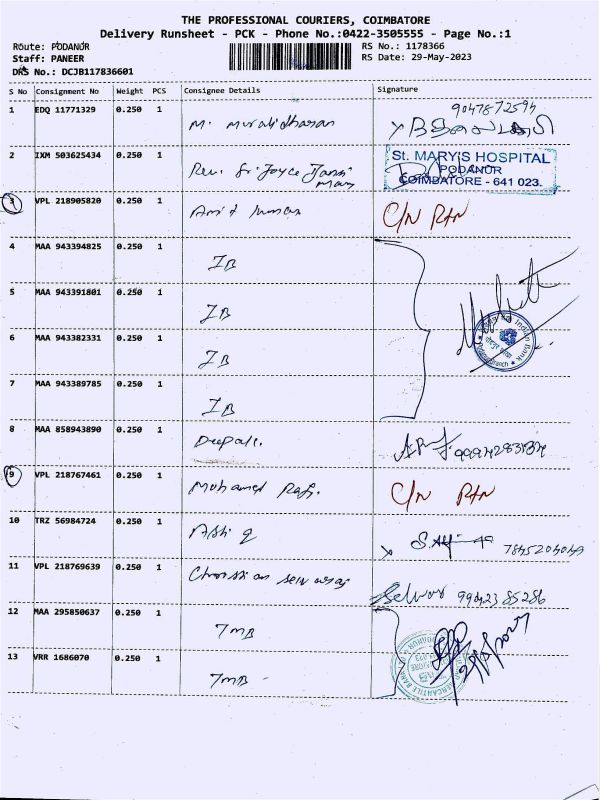 THE PROFESSIONAL COURIERS, COIMBATORE
Delivery Runsheet - PCK - Phone No.:0422-3505555 - Page No.:1
Route: PODANUR
RS No.: 1178366
Staff: PANEER
RS Date: 29-May-2023
DRS No.: DCJB117836601
S No Consignment No Weight PCS Consignee Details Signature
1 EDQ 11771329 0.250 1 M. Muralidharan
2 IXM 503625434 0.250 1 Rev. Sr. Joyce
St. MARY'S HOSPITAL
PODANUR
COIMBATORE - 641 023.
3 VPL 218905820 0.250 1 C/N RTN
4 MAA 943394825 0.250 1 IB
5 MAA 943391801 0.250 1 IB
6 MAA 943382331 0.250 1 IB
Indian Bank
7 MAA 943389785 0.250 1 IB
8 MAA 858943890 0.250 1 Deepali.
9 VPL 218767461 0.250 1 Mohamed Rafi. C/N RTN
10 TRZ 56984724 0.250 1
11 VPL 218769639 0.250 1 Selvar 99423 85286
12 MAA 295850637 0.250 1 TMB
13 VRR 1686070 0.250 1 TMB